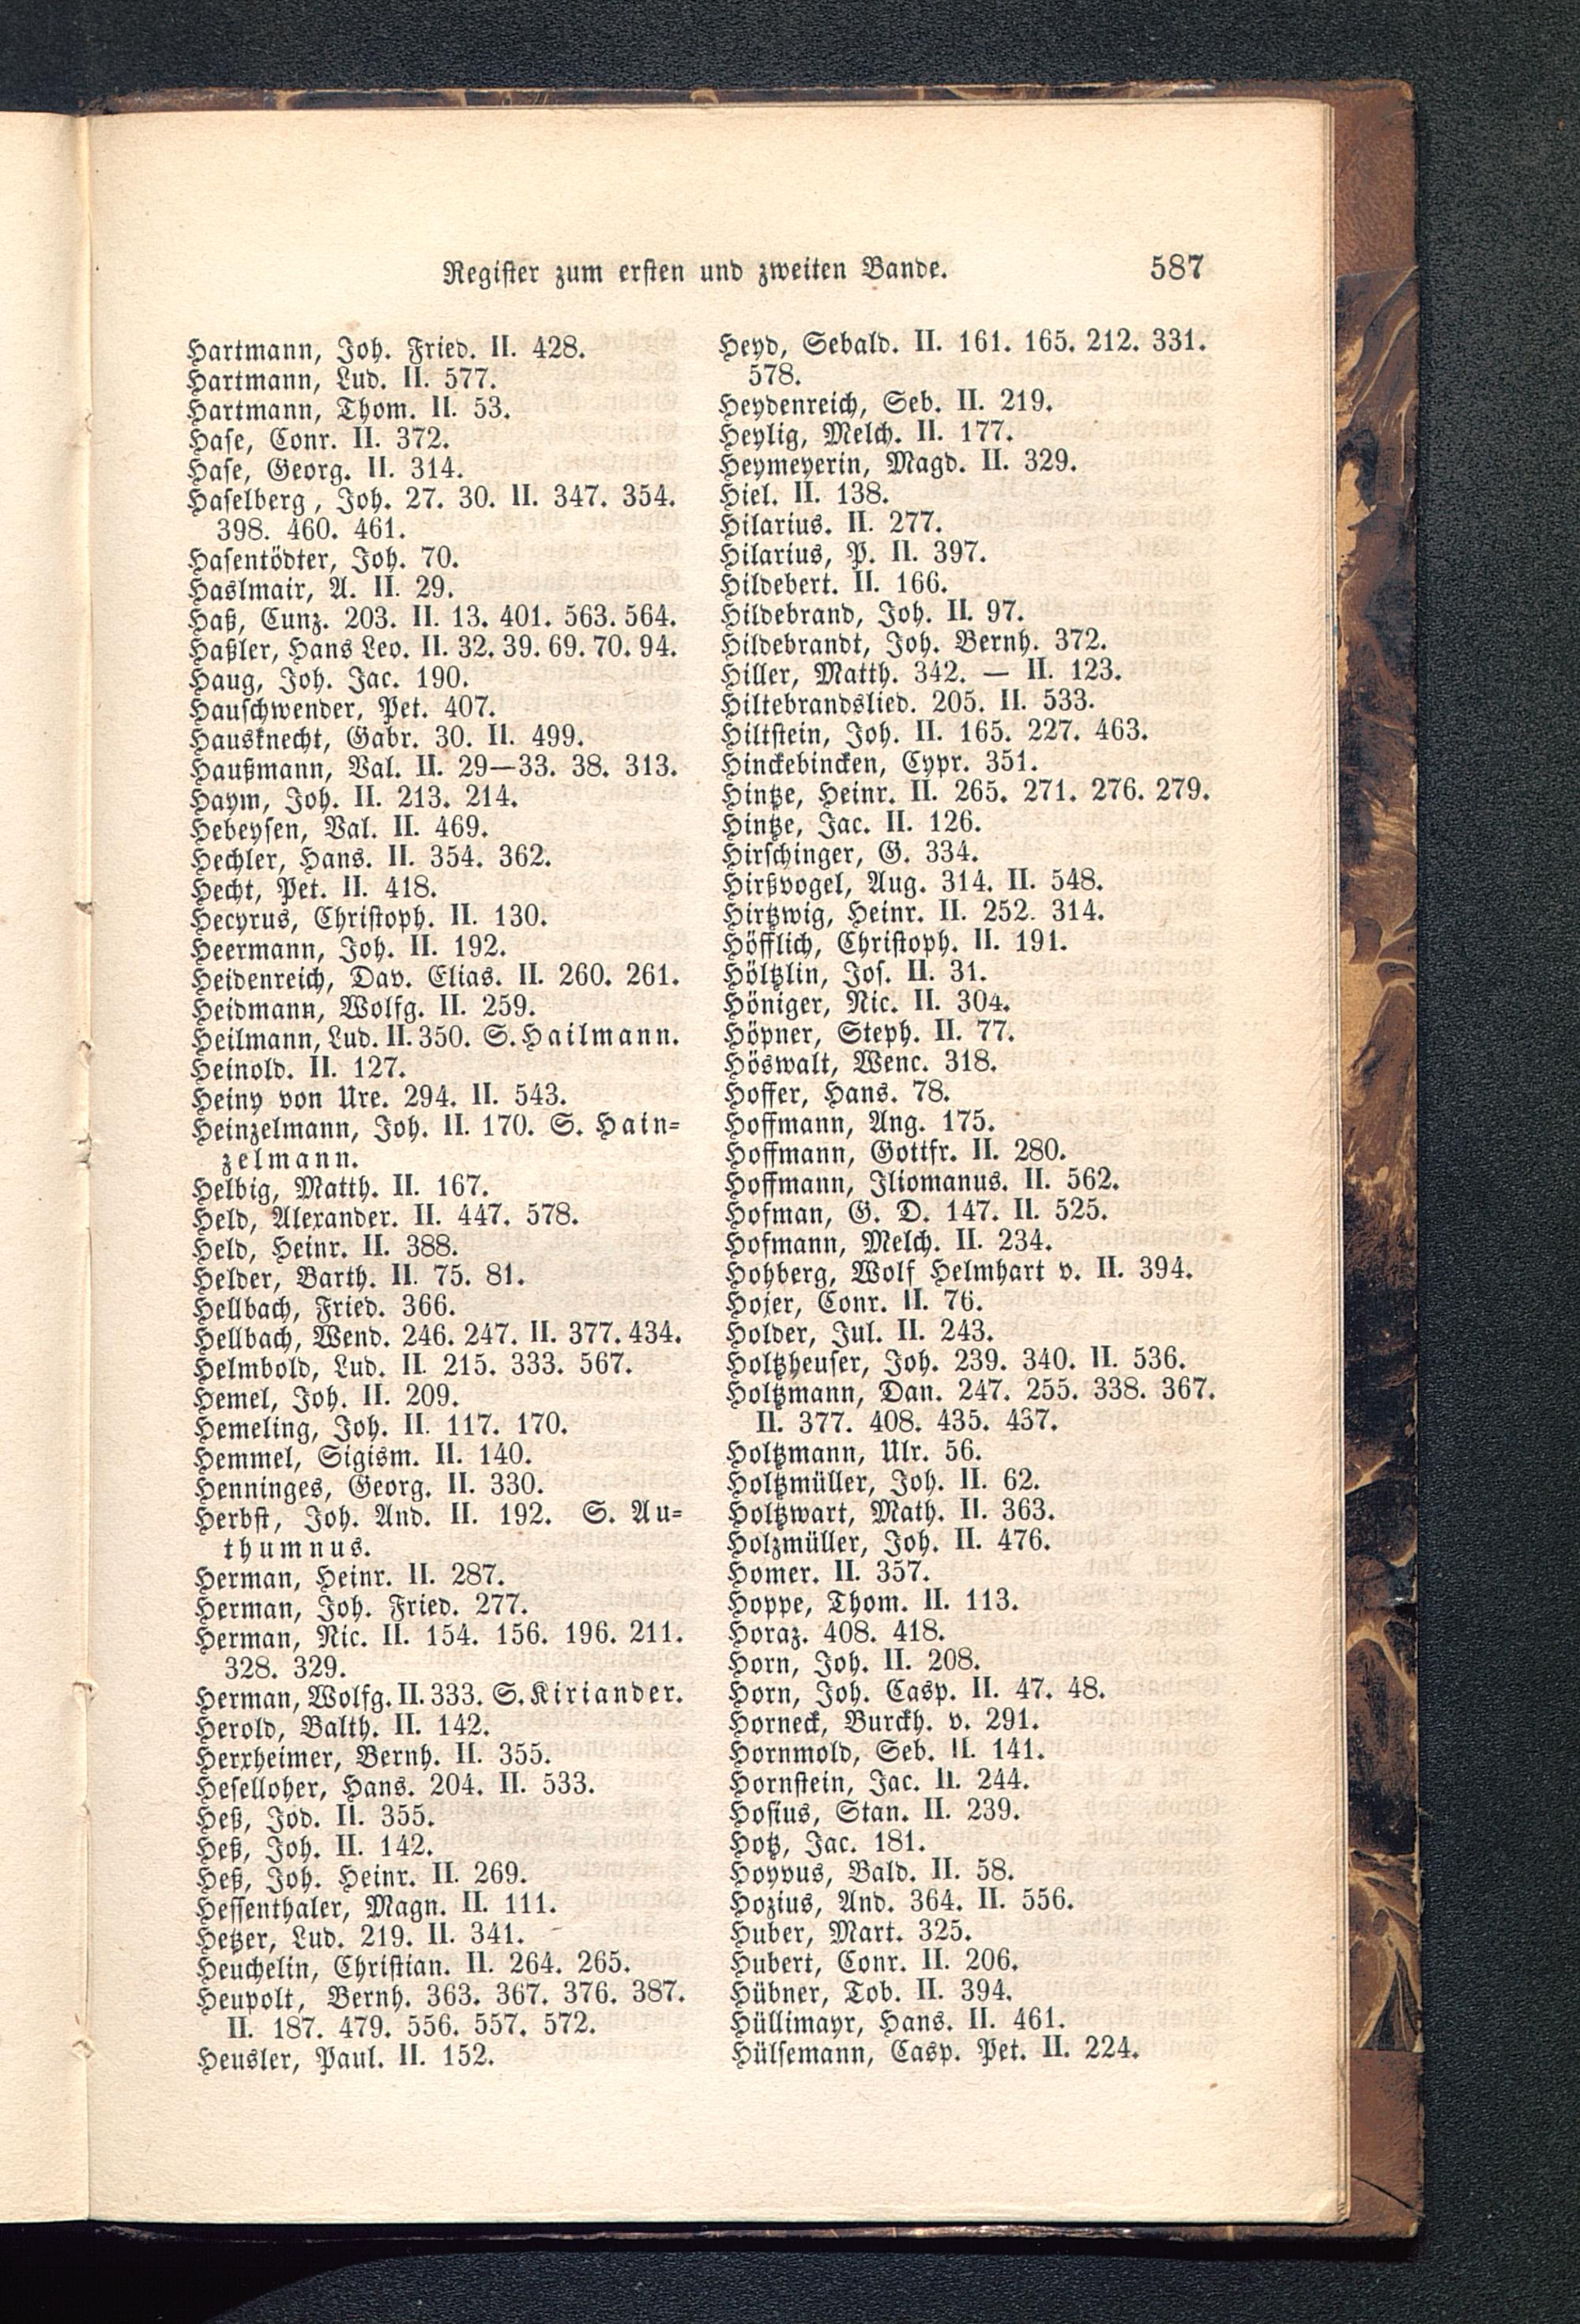 Register zum ersten und zweiten Bande. 587
Hartmann, Joh. Fried. II. 428.
Hartmann, Lud. II. 577.
Hartmann, Thom. II. 53.
Hase, Conr. II. 372.
Hase, Georg. II. 314.
Haselberg, Joh. 27. 30. II. 347. 354.
398. 460. 461.
Hasentödter, Joh. 70.
Haslmair, A. II. 29.
Haß, Cunz. 203. II. 13. 401. 563. 564.
Haßler, Hans Leo. II. 32. 39. 69. 70. 94.
Haug, Joh. Jac. 190.
Hauschwender, Pet. 407.
Hausknecht, Gabr. 30. II. 499.
Haußmann, Val. II. 29—33. 38. 313.
Haym, Joh. II. 213. 214.
Hebeysen, Val. II. 469.
Hechler, Hans. II. 354. 362.
Hecht, Pet. II. 418.
Hecyrus, Christoph. II. 130.
Heermann, Joh. II. 192.
Heidenreich, Dav. Elias. II. 260. 261.
Heidmann, Wolfg. II. 259.
Heilmann, Lud. II. 350. S. Hailmann.
Heinold. II. 127.
Heiny von Ure. 294. II. 543.
Heinzelmann, Joh. II. 170. S. Hain-
zelmann.
Helbig, Matth. II. 167.
Held, Alexander. II. 447. 578.
Held, Heinr. II. 388.
Helder, Barth. II. 75. 81.
Hellbach, Fried. 366.
Hellbach, Wend. 246. 247. II. 377. 434.
Helmbold, Lud. II. 215. 333. 567.
Hemel, Joh. II. 209.
Hemeling, Joh. II. 117. 170.
Hemmel, Sigism. II. 140.
Henninges, Georg. II. 330.
Herbst, Joh. And. II. 192. S. Au-
thumnus.
Herman, Heinr. II. 287.
Herman, Joh. Fried. 277.
Herman, Nic. II. 154. 156. 196. 211.
328. 329.
Herman, Wolfg. II. 333. S. Kiriander.
Herold, Balth. II. 142.
Herxheimer, Bernh. II. 355.
Heselloher, Hans. 204. II. 533.
Heß, Jod. II. 355.
Heß, Joh. II. 142.
Heß, Joh. Heinr. II. 269.
Hessenthaler, Magn. II. 111.
Hetzer, Lud. 219. II. 341.
Heuchelin, Christian. II. 264. 265.
Heupolt, Bernh. 363. 367. 376. 387.
II. 187. 479. 556. 557. 572.
Heusler, Paul. II. 152.
Heyd, Sebald. II. 161. 165. 212. 331.
578.
Heydenreich, Seb. II. 219.
Heylig, Melch. II. 177.
Heymeyerin, Magd. II. 329.
Hiel. II. 138.
Hilarius. II. 277.
Hilarius, P. II. 397.
Hildebert. II. 166.
Hildebrand, Joh. II. 97.
Hildebrandt, Joh. Bernh. 372.
Hiller, Matth. 342. — II. 123.
Hiltebrandslied. 205. II. 533.
Hiltstein, Joh. II. 165. 227. 463.
Hinckebincken, Cypr. 351.
Hintze, Heinr. II. 265. 271. 276. 279.
Hintze, Jac. II. 126.
Hirschinger, G. 334.
Hirßvogel, Aug. 314. II. 548.
Hirtzwig, Heinr. II. 252. 314.
Höfflich, Christoph. II. 191.
Höltzlin, Jos. II. 31.
Höniger, Nic. II. 304.
Höpner, Steph. II. 77.
Höswalt, Wenc. 318.
Hoffer, Hans. 78.
Hoffmann, Ang. 175.
Hoffmann, Gottfr. II. 280.
Hoffmann, Iliomanus. II. 562.
Hofman, G. D. 147. II. 525.
Hofmann, Melch. II. 234.
Hohberg, Wolf Helmhart v. II. 394.
Hojer, Conr. II. 76.
Holder, Jul. II. 243.
Holtzheuser, Joh. 239. 340. II. 536.
Holtzmann, Dan. 247. 255. 338. 367.
II. 377. 408. 435. 437.
Holtzmann, Ulr. 56.
Holtzmüller, Joh. II. 62.
Holtzwart, Math. II. 363.
Holzmüller, Joh. II. 476.
Homer. II. 357.
Hoppe, Thom. II. 113.
Horaz. 408. 418.
Horn, Joh. II. 208.
Horn, Joh. Casp. II. 47. 48.
Horneck, Burckh. v. 291.
Hornmold, Seb. II. 141.
Hornstein, Jac. II. 244.
Hosius, Stan. II. 239.
Hotz, Jac. 181.
Hoyvus, Bald. II. 58.
Hozius, And. 364. II. 556.
Huber, Mart. 325.
Hubert, Conr. II. 206.
Hübner, Tob. II. 394.
Hüllimayr, Hans. II. 461.
Hülsemann, Casp. Pet. II. 224.